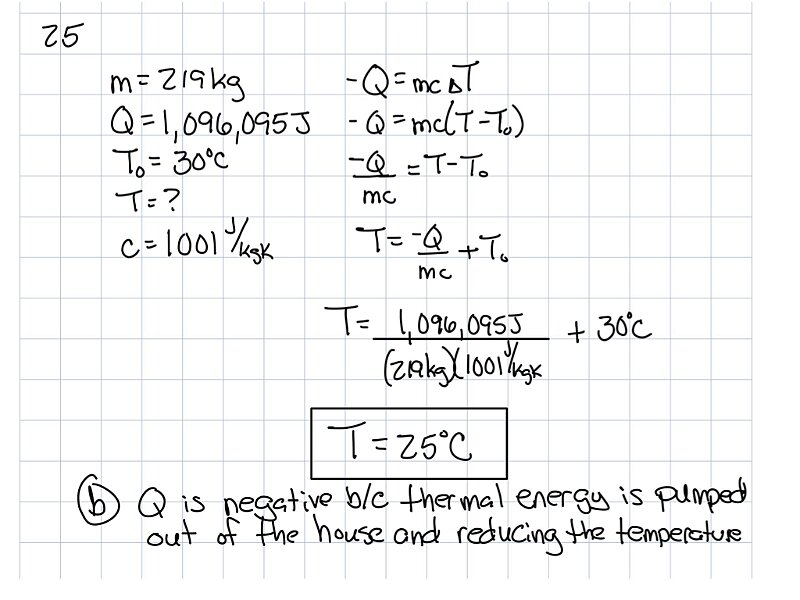 25
m = 219kg
Q = 1,096,095J
T₀ = 30°C
T = ?
c = 1001 J/kgK
-Q = mc△T
-Q = mc(T-T₀)
-Q/mc = T-T₀
T = -Q/mc + T₀
T = 1,096,095J/(219kg)(1001 J/kgK) + 30°C
T = 25°C
ⓑ Q is negative b/c thermal energy is pumped
out of the house and reducing the temperature